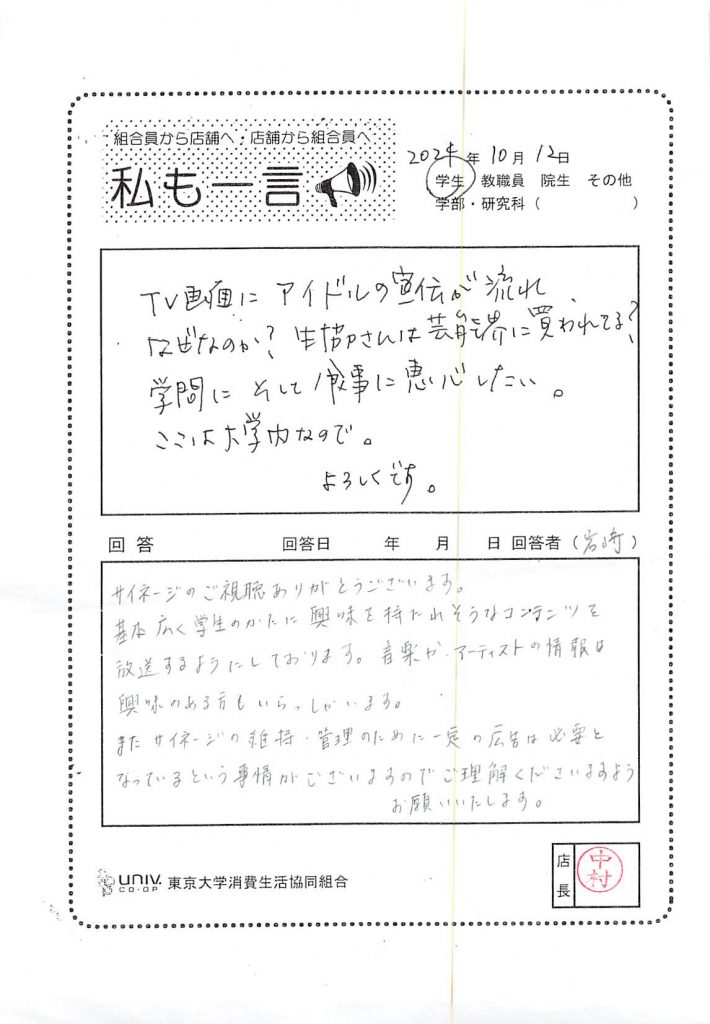 組合員から店舗へ・店舗から組合員へ
私も一言
2024年10月12日
学生 教職員 院生 その他
学部・研究科( )
TV画面に アイドルの宣伝が 流れ、
なぜなのか? 生協さんは芸能界に買われてる?
学問に そして 食事に 専心したい。
ここは大学内なので。
よろしくです。
回答 回答日 年 月 日 回答者(岩崎)
サイネージのご視聴ありがとうございます。
基本広く学生のかたに興味を持たれそうなコンテンツを
放送するようにしております。音楽や アーティストの情報は
興味のある方もいらっしゃいます。
またサイネージの維持・管理のために一定の広告は必要と
なっているという事情がございますのでご理解くださいますよう
お願いいたします。
UNIV.
CO-OP 東京大学消費生活協同組合
店長
中村